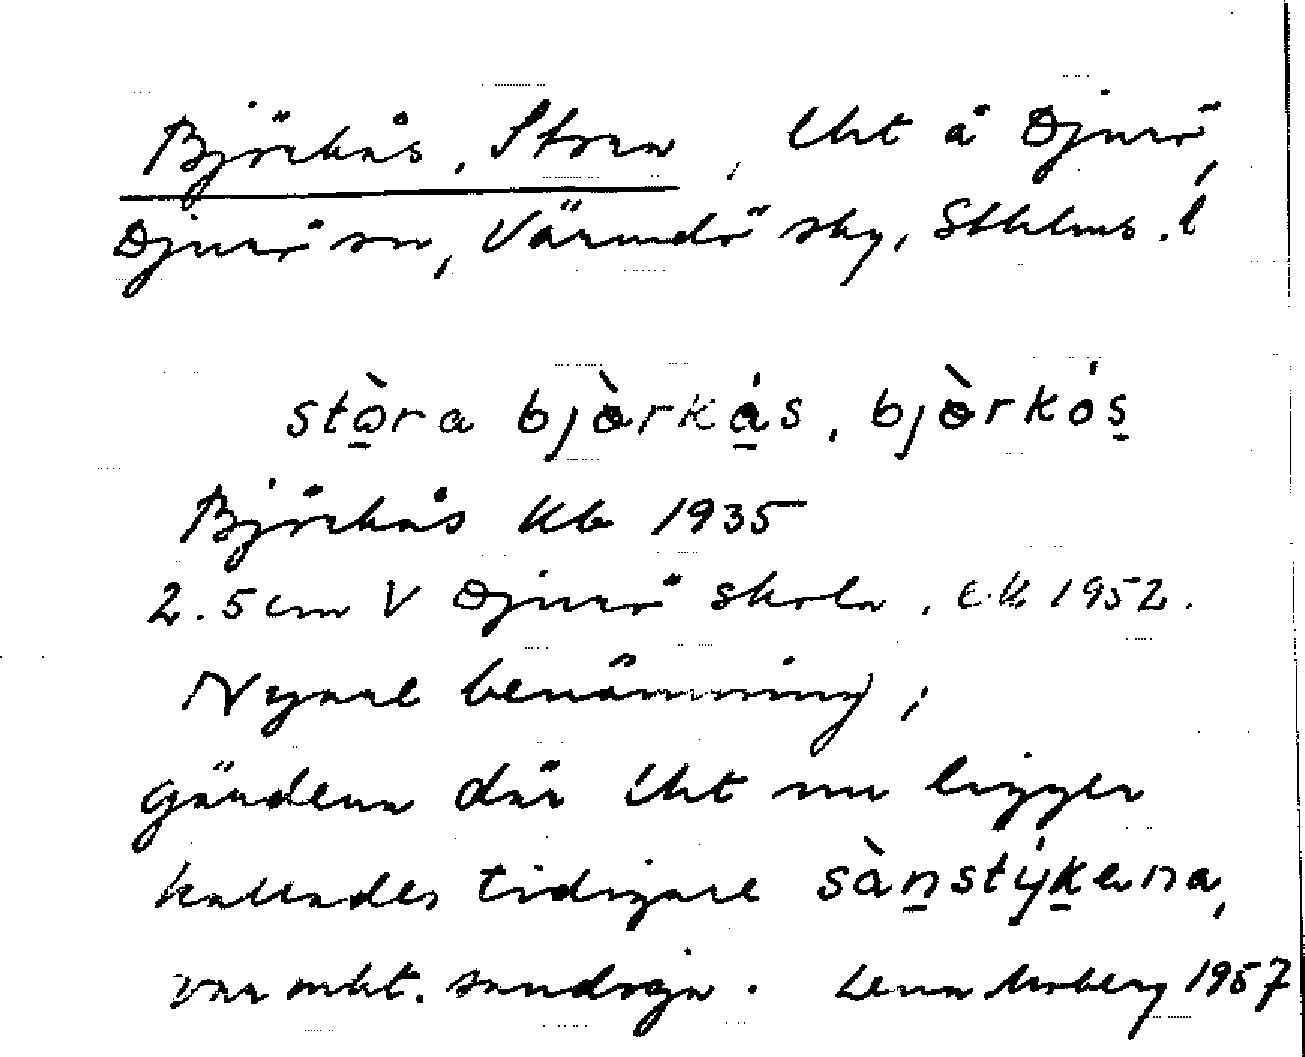 Björkås, Stora, lht å Djurö,
Djurö sn, Värmdö sky, Sthlms l
stò̱ra bjò̈rkǻ̱s, bjò̈rkós̱
Björkås Kb 1935
2.5 cm V Djurö skola, e.k. 1952.
Nyare benämning;
gärdena där lht nu ligger
kallades tidigare sàṉstýḵena,
var mkt. sandiga. Lena Moberg 1957